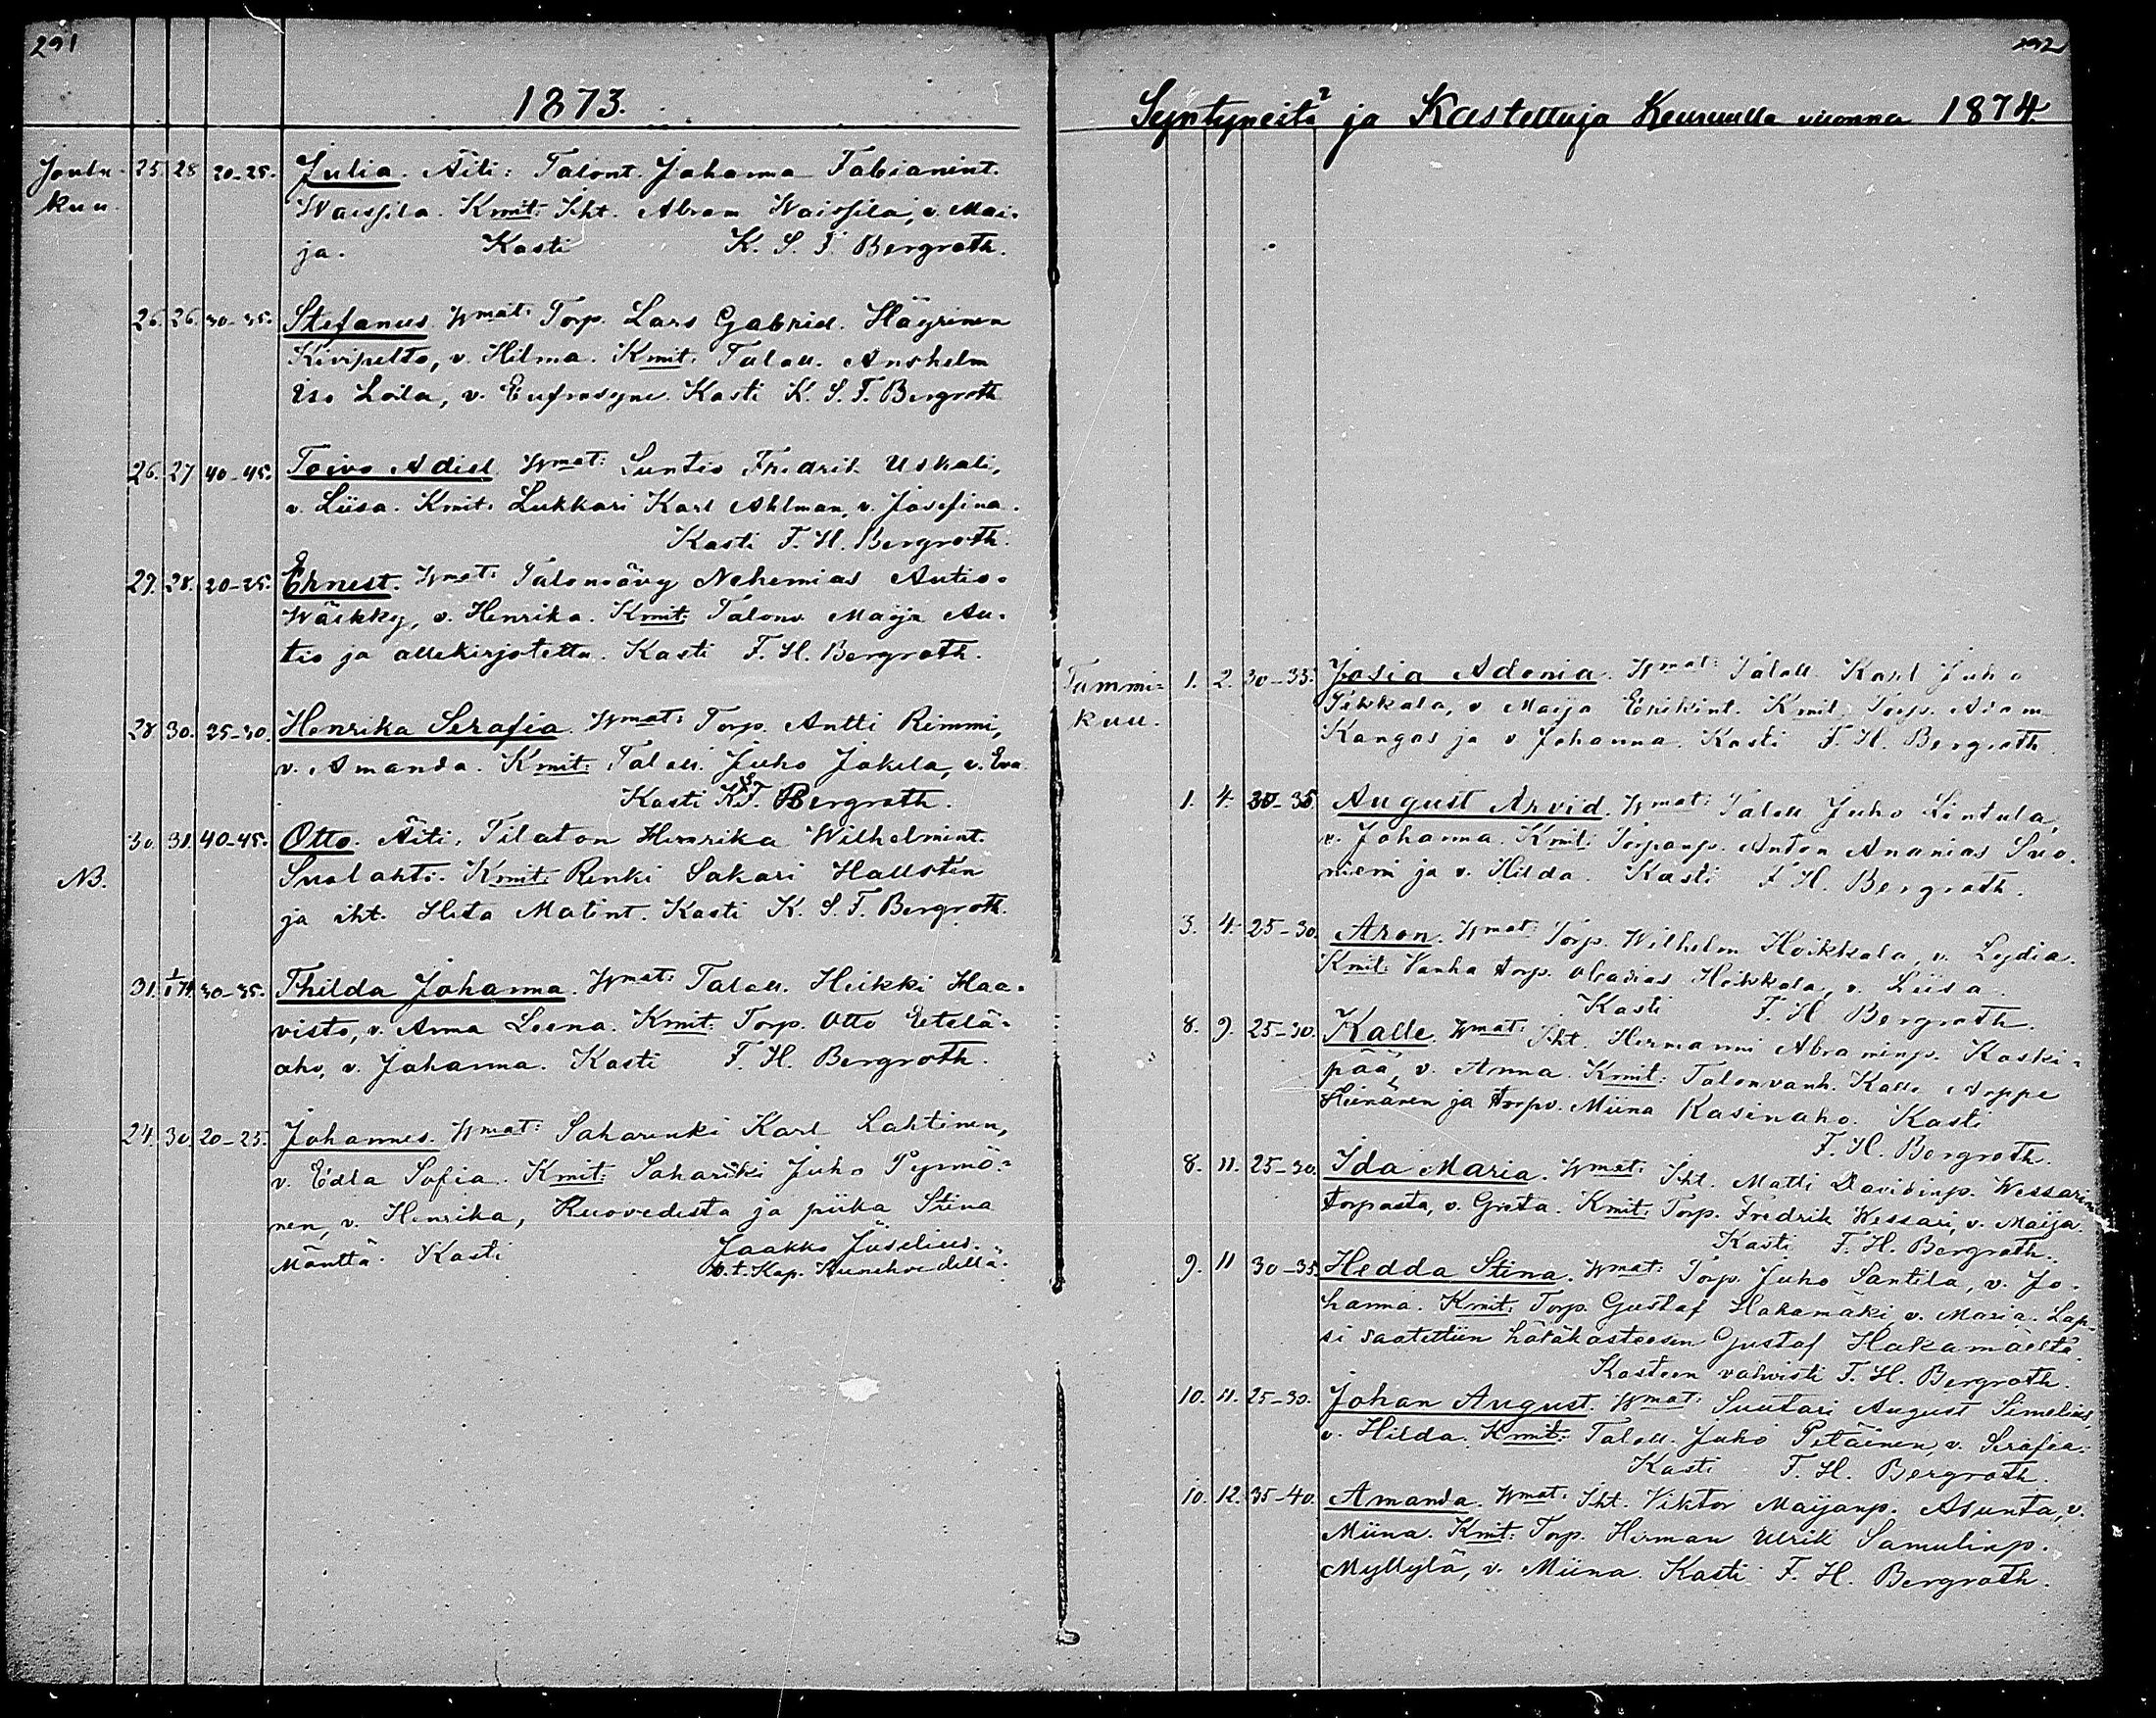 291
1873.
Joulu- 25. 28 20-25. Julia. Äiti: Talont. Johanna Fabianint.
kuu. Waissila. Kmit: Iht. Abram Waissila, v. Mai-
ja. Kasti K. S. F. Bergroth.
26. 26. 30-35. Stefanus. Wmat: Torp. Lars Gabriel Häyrinen
Kivipelto, v. Hilma. Kmit. Taloll. Anshelm
Iso Loila, v. Eufrosyne. Kasti K. S. F. Bergroth
26. 27 40-45. Toivo Adiel. Wmat: Suntio Fredrik Uskali,
v. Liisa. Kmit. Lukkari Karl Ahlman, v. Josefina.
Kasti F. H. Bergroth.
27. 28. 20-25. Ernest. Wmat: Talonvävy Nehemias Autio-
Wäckky, v. Henrika. Kmit: Talonv. Maija Au-
tio ja allekirjotettu. Kasti F. H. Bergroth.
28 30. 25-30. Henrika Serafia. Wmat: Torp. Antti Rimmi,
v. Amanda. Kmit: Taloll. Juho Jokela, v. Eva
Kasti K.S.F. Bergroth.
30. 31. 40-45. Otto. Äiti: Tilaton Henrika Wilhelmint.
NB. Suolahti. Kmit: Renki Sakari Hallsten
ja iht. Heta Matint. Kasti K. S. F. Bergroth.
31. 1/1 74. 30-35. Thilda Johanna. Wmat: Taloll. Heikki Haa-
visto, v. Anna Leena. Kmit: Torp. Otto Etelä-
aho, v. Johanna. Kasti F. H. Bergroth.
24. 30. 20-25. Johannes. Wmat: Saharenki Karl Lahtinen,
v. Edla Sofia. Kmit: Juho Pyrnö-
nen, v. Henrika, Ruovedeltä ja piika Stina
Mänttä. Kasti Jaakko Juselius.
v. t. Kap.
292
Syntyneitä ja Kastettuja Keuruulla vuonna 1874.
Tammi- 1. 2. 30-35. Josia Adonia. Wmat: Taloll. Karl Juho
kuu. Pikkala, v. Maija Erikint. Kmit. Torp. Adam
Kangas ja v. Johanna. Kasti F. H. Bergroth.
1. 4. 30-35 August Arvid. Wmat: Taloll Juho Lintula,
v. Johanna. Kmit: Torpanp. Anton Ananias Suo-
niemi ja v. Hilda. Kasti F. H. Bergroth.
3. 4. 25-30. Aron. Wmat: Torp. Wilhelm Hoikkala, v. Lydia.
Kmit: Vanha torp. Abadias Hoikkala, v. Liisa.
Kasti F. H Bergroth.
8. 9. 25-30. Kalle. Wmat: Iht. Hermanni Abraminp. Koski-
pää, v. Anna. Kmit: Talonvanh. Kalle Joppe
Heinänen ja torpv. Miina Kasinaho. Kasti
F. H. Bergroth.
8. 11. 25-30. Ida Maria. Wmat: Iht. Matti Davidinp. Wessarin
torpasta, v. Greta. Kmit: Torp. Fredrik Wessari, v. Maija.
Kasti F. H. Bergroth.
9. 11 30-35. Hedda Stina. Wmat: Torp. Juho Santila, v. Jo-
hanna. Kmit: Torp. Gustaf Hakamäki, v. Maria. Lap-
si saatettiin hätäkasteesen Gustaf Hakamäeltä.
Kasteen vahvisti F. H. Bergroth.
10. 11. 25-30. Johan August. Wmat: Suutari August Simelius,
v. Hilda. Kmit: Taloll. Juho Petäinen, v. Serafia.
Kasti F. H. Bergroth.
10. 12. 35-40. Amanda. Wmat: Iht. Viktor Maijanp. Asunta, v.
Miina. Kmit: Torp. Herman Ulrik Samulinp.
Myllylä, v. Miina. Kasti F. H. Bergroth.